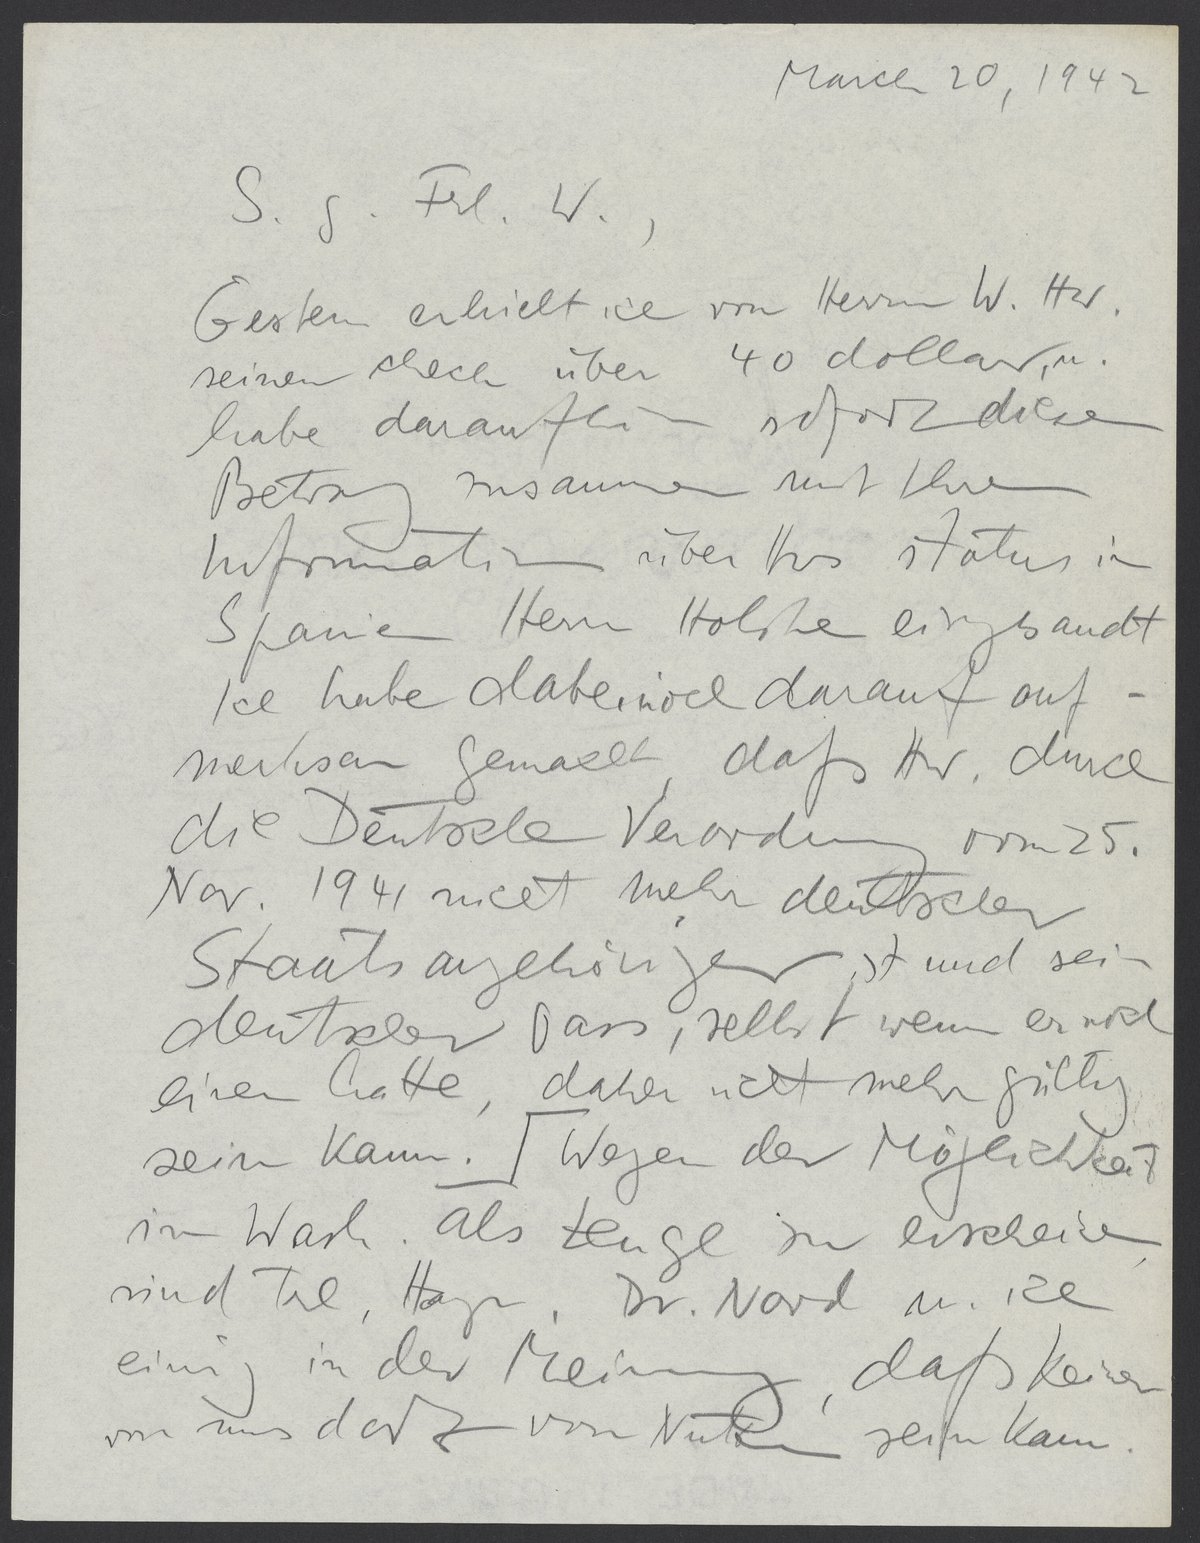 March 20, 1942
S. g. Frl. W.,
Gestern erhielt ich von Herrn W. Hw.
seinen check über 40 dollar, u.
habe daraufhin sofort diesen
Betrag zusammen mit Ihrer
Information über Hws status in
Spanien Herrn eingesandt
Ich habe dabei noch darauf auf-
merksam gemacht, daſs Hw. durch
die Deutsche Verordnung vom 25.
Nov. 1941 nicht mehr deutscher
Staatsangehöriger ist und sein
deutscher Pass, selbst wenn er noch
einen hatte, daher nicht mehr gültig
sein kann. Wegen der Möglichkeit
in Wash. als Zeuge zu erscheinen,
sind Dr. Nord u. ich
einig in der Meinung, daſs keiner
von uns dort von Nutzen sein kann.